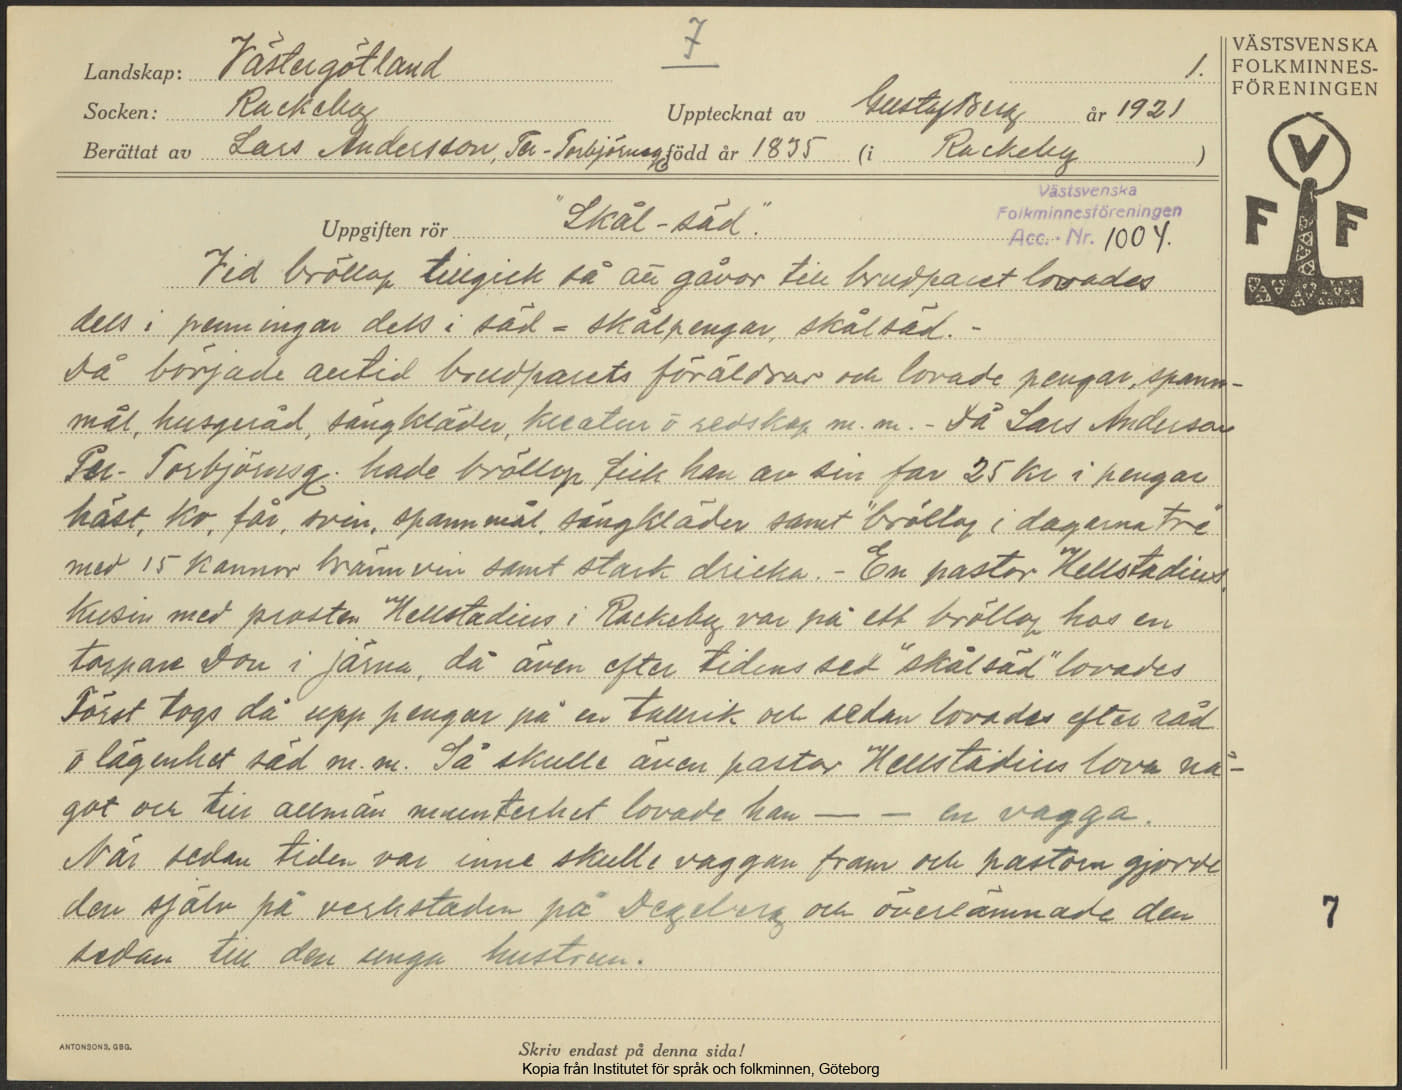 7
Landskap: Västergötland 1.
Socken: Rackeby Upptecknat av Gustaf Berg år 1921
Berättat av Lars Andersson, Per-Torbjörnsg. född år 1835 (i Rackeby)
Västsvenska
Folkminnesföreningen
Acc.-Nr. 1004.
Uppgiften rör "Skål-säd".
Vid bröllop tillgick så att gåvor till brudparet lovades
dels i penningar dels i säd = skålpengar, skålsäd. -
Då började alltid brudparets föräldrar och lovade pengar, spann-
mål, husgeråd, sängkläder, kreatur o redskap m.m. - Då Lars Anderson
Per-Torbjörnsg. hade bröllop fick han av sin far 25 kr i pengar
häst, ko, får, svin, spannmål, sängkläder samt "bröllop i dagarna tre"
med 15 kannor brännvin samt stark dricka. - En pastor Hellstadius,
kusin med prosten Hellstadius i Rackeby var på ett bröllop hos en
torpare Don i Järna, då även efter tidens sed "skålsäd" lovades
Först togs då upp pengar på en tallrik och sedan lovades efter råd
o lägenhet säd m.m. Så skulle även pastor Hellstadius lova nå-
got och till allmän munterhet lovade han — — en vagga.
När sedan tiden var inne skulle vaggan fram och pastorn gjorde
den själv på verkstaden på Degeberg och överlämnade den
sedan till den unga hustrun.
ANTONSONS, GBG.
Skriv endast på denna sida!
Kopia från Institutet för språk och folkminnen, Göteborg
VÄSTSVENSKA
FOLKMINNES-
FÖRENINGEN
V
F F
7